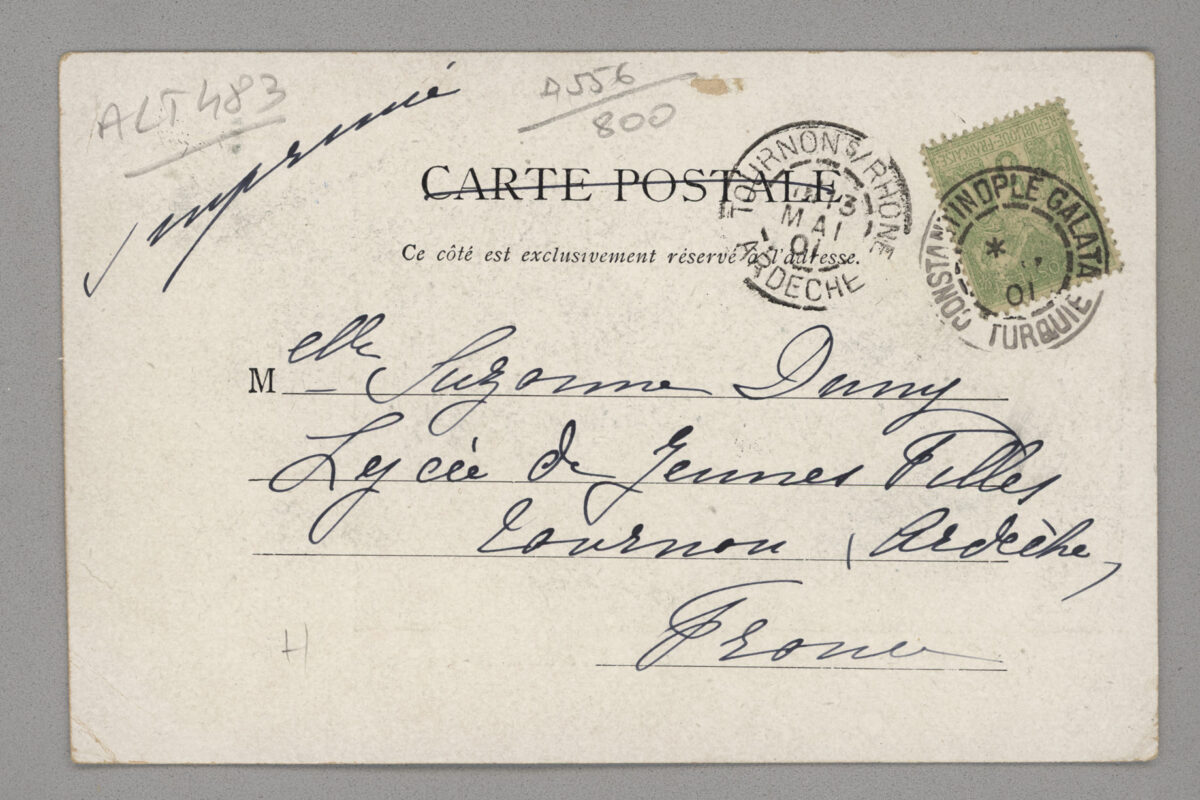 ALT 483
Imprimé
A556
800
CARTE POSTALE
Ce côté est exclusivement réservé à l'adresse.
TOURNON S/RHONE
13
MAI
01
ARDECHE
REPUBLIQUE FRANCAISE
CONSTANTINOPLE GALATA
*
01
TURQUIE
Melle Suzanne Dumy
Lycée de Jeunes Filles
Tournon (Ardèche)
France
H